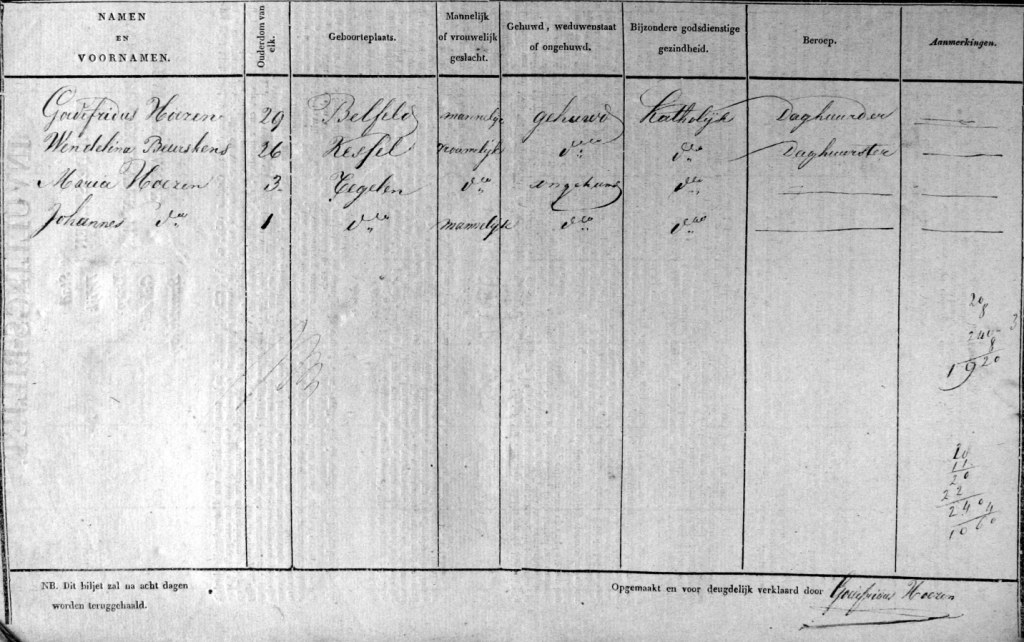 NAMEN EN VOORNAMEN. Ouderdom van elk. Geboorteplaats. Mannelijk of vrouwelijk geslacht. Gehuwd, weduwenstaat of ongehuwd. Bijzondere godsdienstige gezindheid. Beroep. Aanmerkingen.
Godefridus Hoezen 29 Belfeld mannelijk gehuwd Katholijk Daghuurder
Wendelina Beurskens 26 Kessel vrouwelijk do do Daghuurster
Maria Hoezen 3 Tegelen do ongehuwd do
Johannes do 1 do mannelijk do do
208
240
8
1920
20
11
20
22
240
4
NB. Dit biljet zal na acht dagen
worden teruggehaald.
Opgemaakt en voor deugdelijk verklaard door Godefridus Hoezen